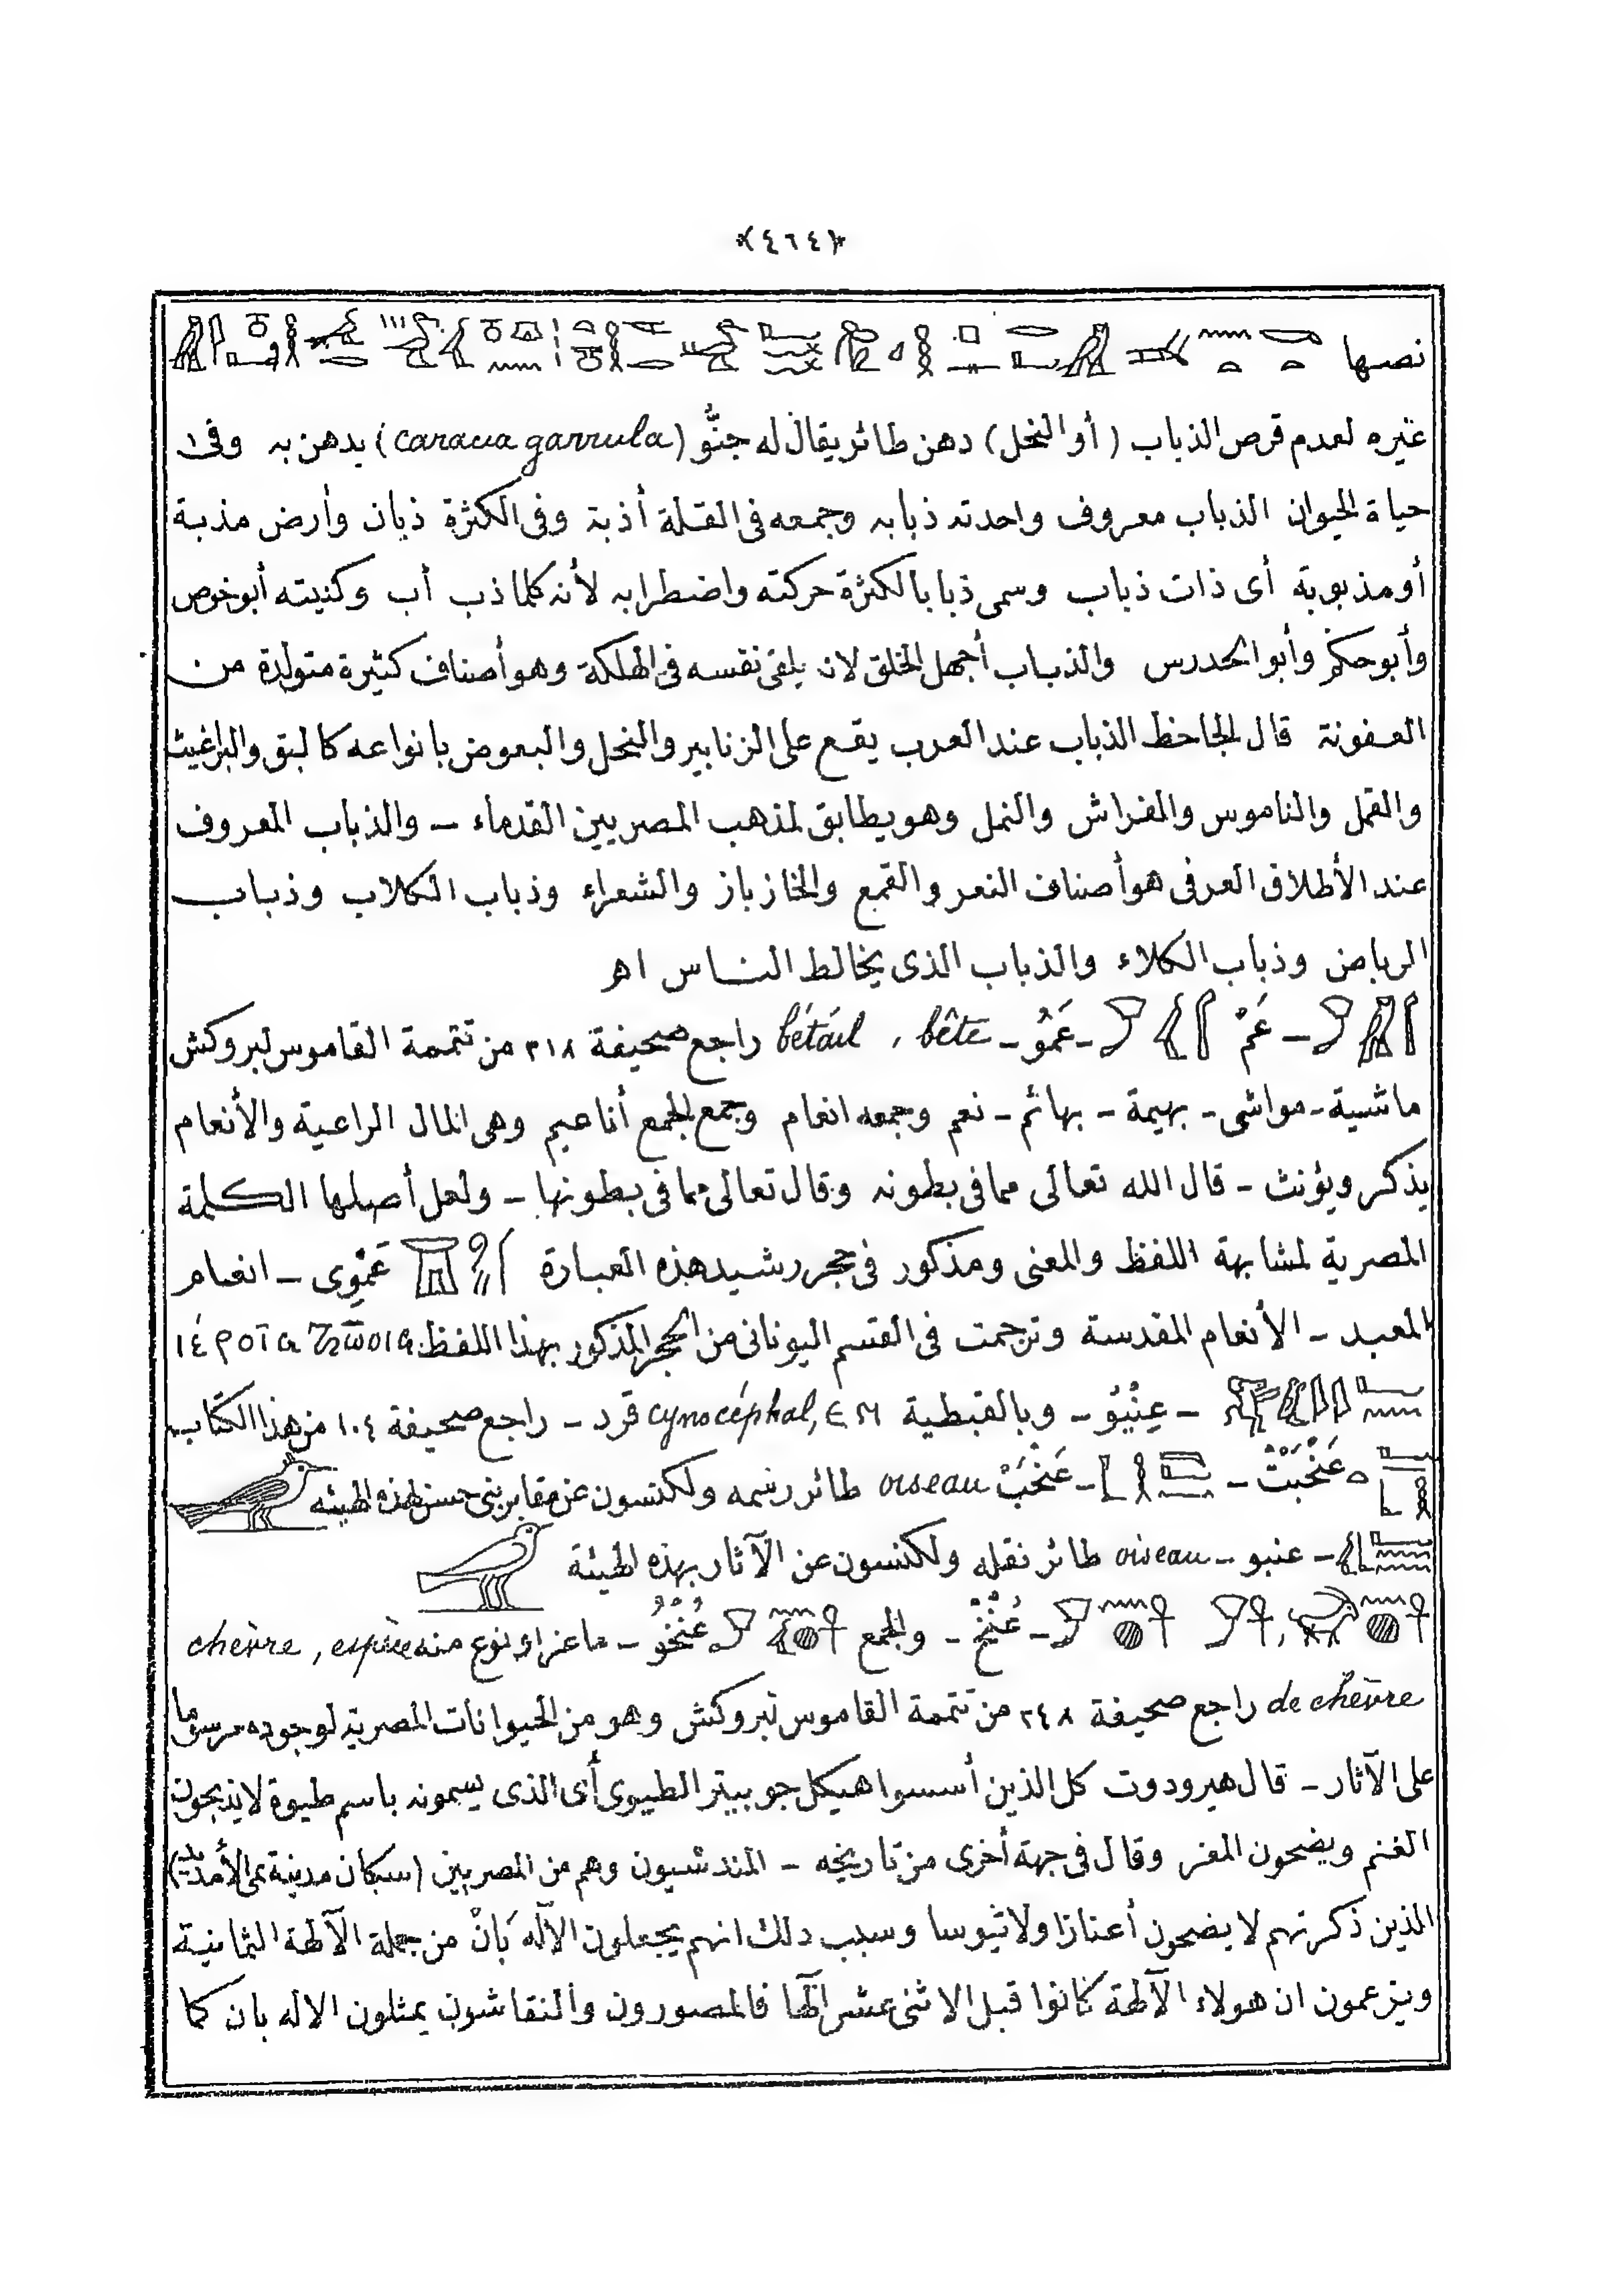 ﴿٤٦٤﴾
نصها
غيره لعدم قرص الذباب (أو النحل) دهن طائر يقال له جنُّو (caracia garrula) يدهن به وفى
حياة الحيوان الذباب معروف واحدته ذبابه وجمعه فى القلة أذبة وفى الكثرة ذبان وأرض مذبة
أو مذبوبة أى ذات ذباب وسمى ذبابا لكثرة حركته واضطرابه لأنه كلما ذب أب وكنيته أبو خوص
وأبو حكم وأبو الحدرس والذباب أجهل الخلق لانه يلقى نفسه فى الهلكة وهو أصناف كثيرة متولدة من
العفونة قال الجاحظ الذباب عند العرب يقع على الزنابير والنحل والبعوض بانواعه كالبق والبراغيث
والقمل والناموس والفراش والنمل وهو يطابق لمذهب المصريين القدماء – والذباب المعروف
عند الأطلاق العرفى هو أصناف النعر والقمع والخازباز والشعراء وذباب الكلاب وذباب
الرياض وذباب الكلاء والذباب الذى يخالط الناس اهـ
– عَمْ – عَمُو – bétail , bête راجع صحيفة ٣١٨ من تتمة القاموس لبروكش
ماشية – مواشى – بهيمة – بهائم – نعم وجمعه انعام وجمع الجمع أناعيم وهى المال الراعية والأنعام
يذكر ويؤنث – قال الله تعالى مما فى بطونه وقال تعالى مما فى بطونها – ولعل أصلها الكلمة
المصرية لمشابهة اللفظ والمعنى ومذكور فى حجر رشيد هذه العبارة عَمْوِى – انعام
المعبد – الأنعام المقدسة وترجمت فى القسم اليونانى من الحجر المذكور بهذا اللفظ
– عِنْبُو – وبالقبطية ⲉⲛ ,cynocéphal قرد – راجع صحيفة ١٠٤ من هذا الكتاب
عَنْخَبَتْ – – عَنْخَبْ oiseau طائر رسمه ولكنسون عن مقابر بنى حسن بهذه الهيئه
– عنبو – oiseau طائر نقله ولكنسون عن الآثار بهذه الهيئة
– عُنْخْ – والجمع عُنْخُو – ماعز او نوع منه chèvre , espèce
de chèvre راجع صحيفة ٢٤٨ من تتمة القاموس لبروكش وهو من الحيوانات المصرية لوجوده مرسوما
على الآثار – قال هيرودوت كل الذين أسسوا هيكل جوبيتر الطيبوى أى الذى يسمونه باسم طيوة لا يذبحون
الغنم ويضحون المعز وقال فى جهة أخرى من تاريخه – المندشيون وهم من المصريين (سكان مدينة تمى الأمديد)
الذين ذكرتهم لا يضحون أعنازا ولا تيوسا وسبب دلك انهم يجعلون الآله بَانْ من جملة الآلهة الثمانية
ويزعمون ان هولاء الآلهة كانوا قبل الاثنى عشر الٓها فالمصورون والنقاشون يمثلون الاله بان كما